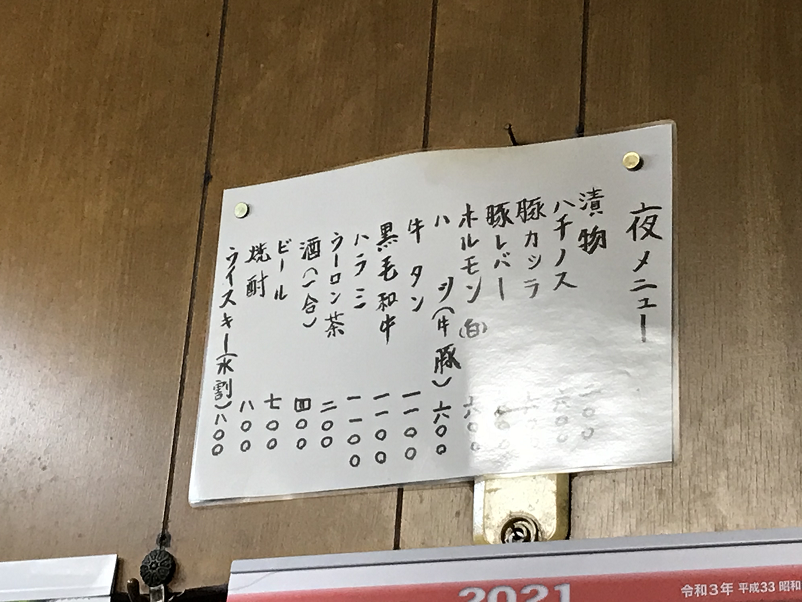 夜メニュー
漬物
ハチノス 六〇〇
豚カシラ
豚レバー
ホルモン(白) 六〇〇
ハツ(牛豚) 六〇〇
牛タン 一一〇〇
黒毛和牛 一一〇〇
ハラミ 一一〇〇
ウーロン茶 二〇〇
酒(一合) 四〇〇
ビール 七〇〇
焼酎 八〇〇
ウイスキー(水割) 八〇〇
2021 令和3年 平成33 昭和